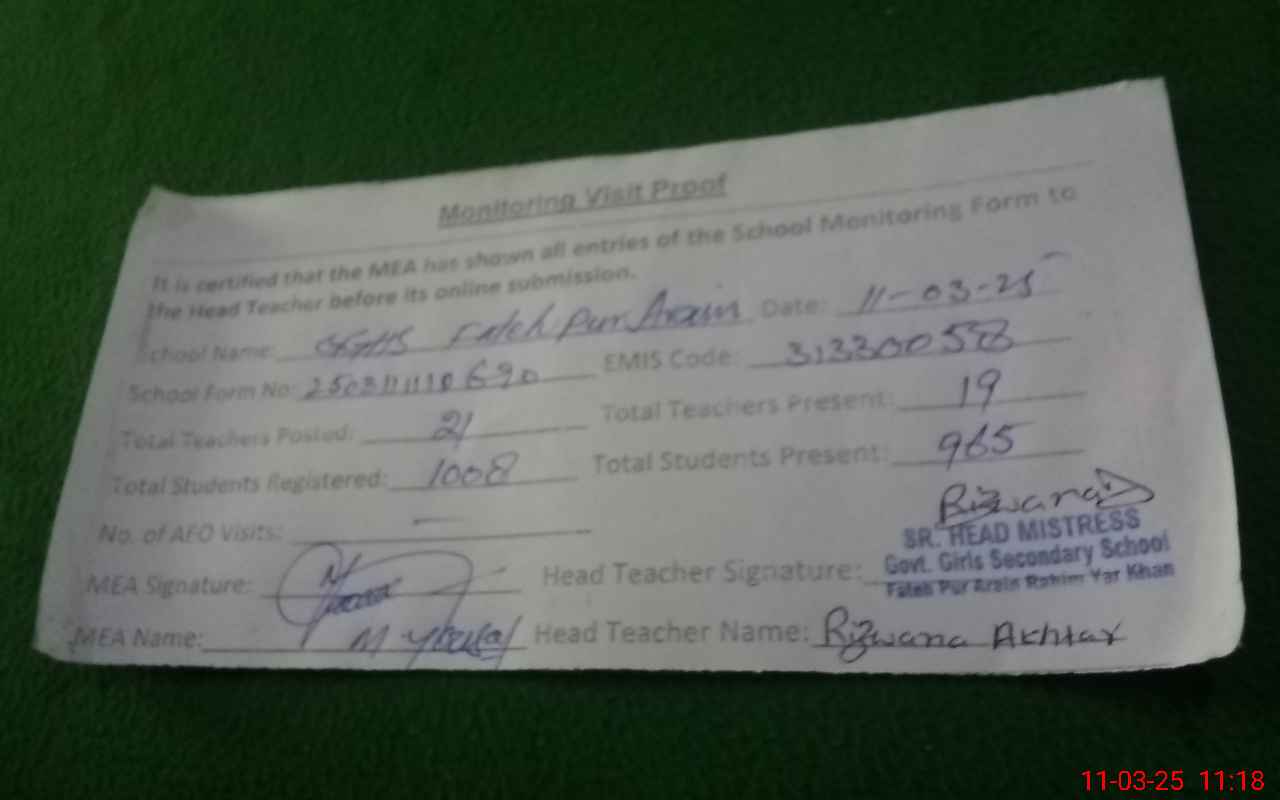 Monitoring Visit Proof
It is certified that the MEA has shown all entries of the School Monitoring Form to
the Head Teacher before its online submission.
chool Name: GGHS Fateh Pur Arain Date: 11-03-25
School Form No: EMIS Code: 31330058
Total Teachers Posted: 21 Total Teachers Present: 19
Total Students Registered: 1008 Total Students Present: 965
No. of AEO Visits: —
Rizwana
SR. HEAD MISTRESS
Govt. Girls Secondary School
Fateh Pur Arain Rahim Yar Khan
MEA Signature: Head Teacher Signature:
MEA Name: M Head Teacher Name: Rizwana Akhtar
11-03-25 11:18